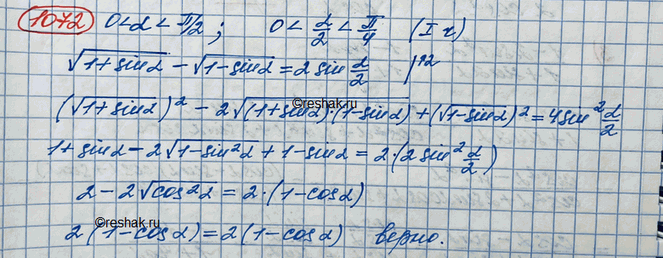 1072 0 < α < π/2 ; 0 < α/2 < π/4 (I ч)
√(1+sinα) − √(1−sinα) = 2 sin α/2 |↑2
(√(1+sinα))² − 2√((1+sinα)·(1−sinα)) + (√(1−sinα))² = 4 sin² α/2
©reshak.ru
1 + sinα − 2√(1−sin²α) + 1 − sinα = 2·(2 sin² α/2)
2 − 2√(cos²α) = 2·(1−cosα)
©reshak.ru
2(1−cosα) = 2(1−cosα) верно.